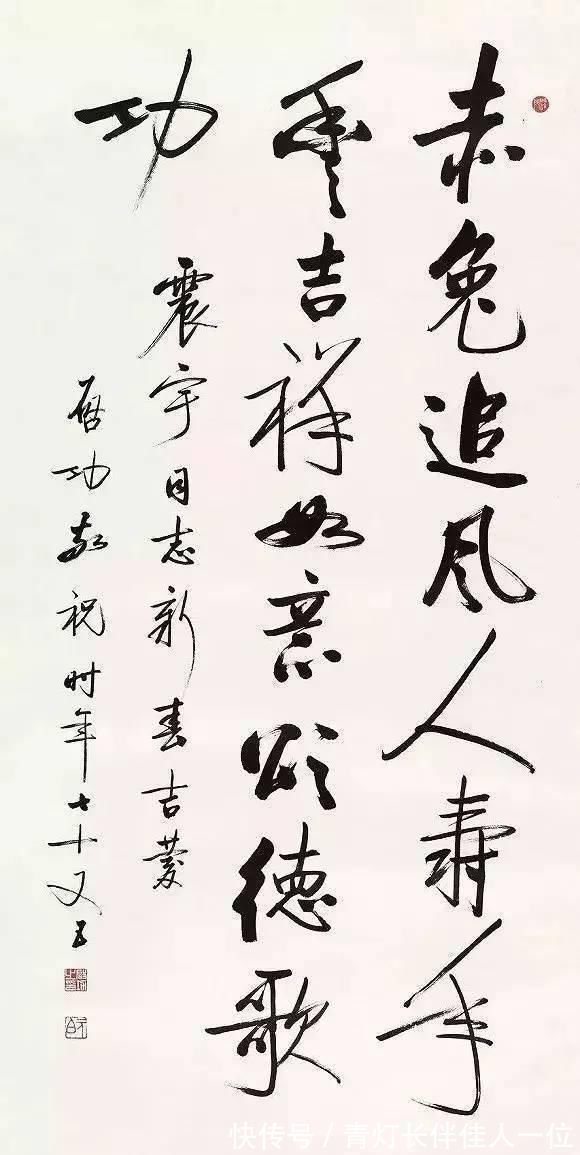 赤兔追风人寿年
丰吉祥如意颂德歌
功
震宇同志新春吉慶
启功敬祝时年七十又五
快传号 / 青灯长伴佳人一位